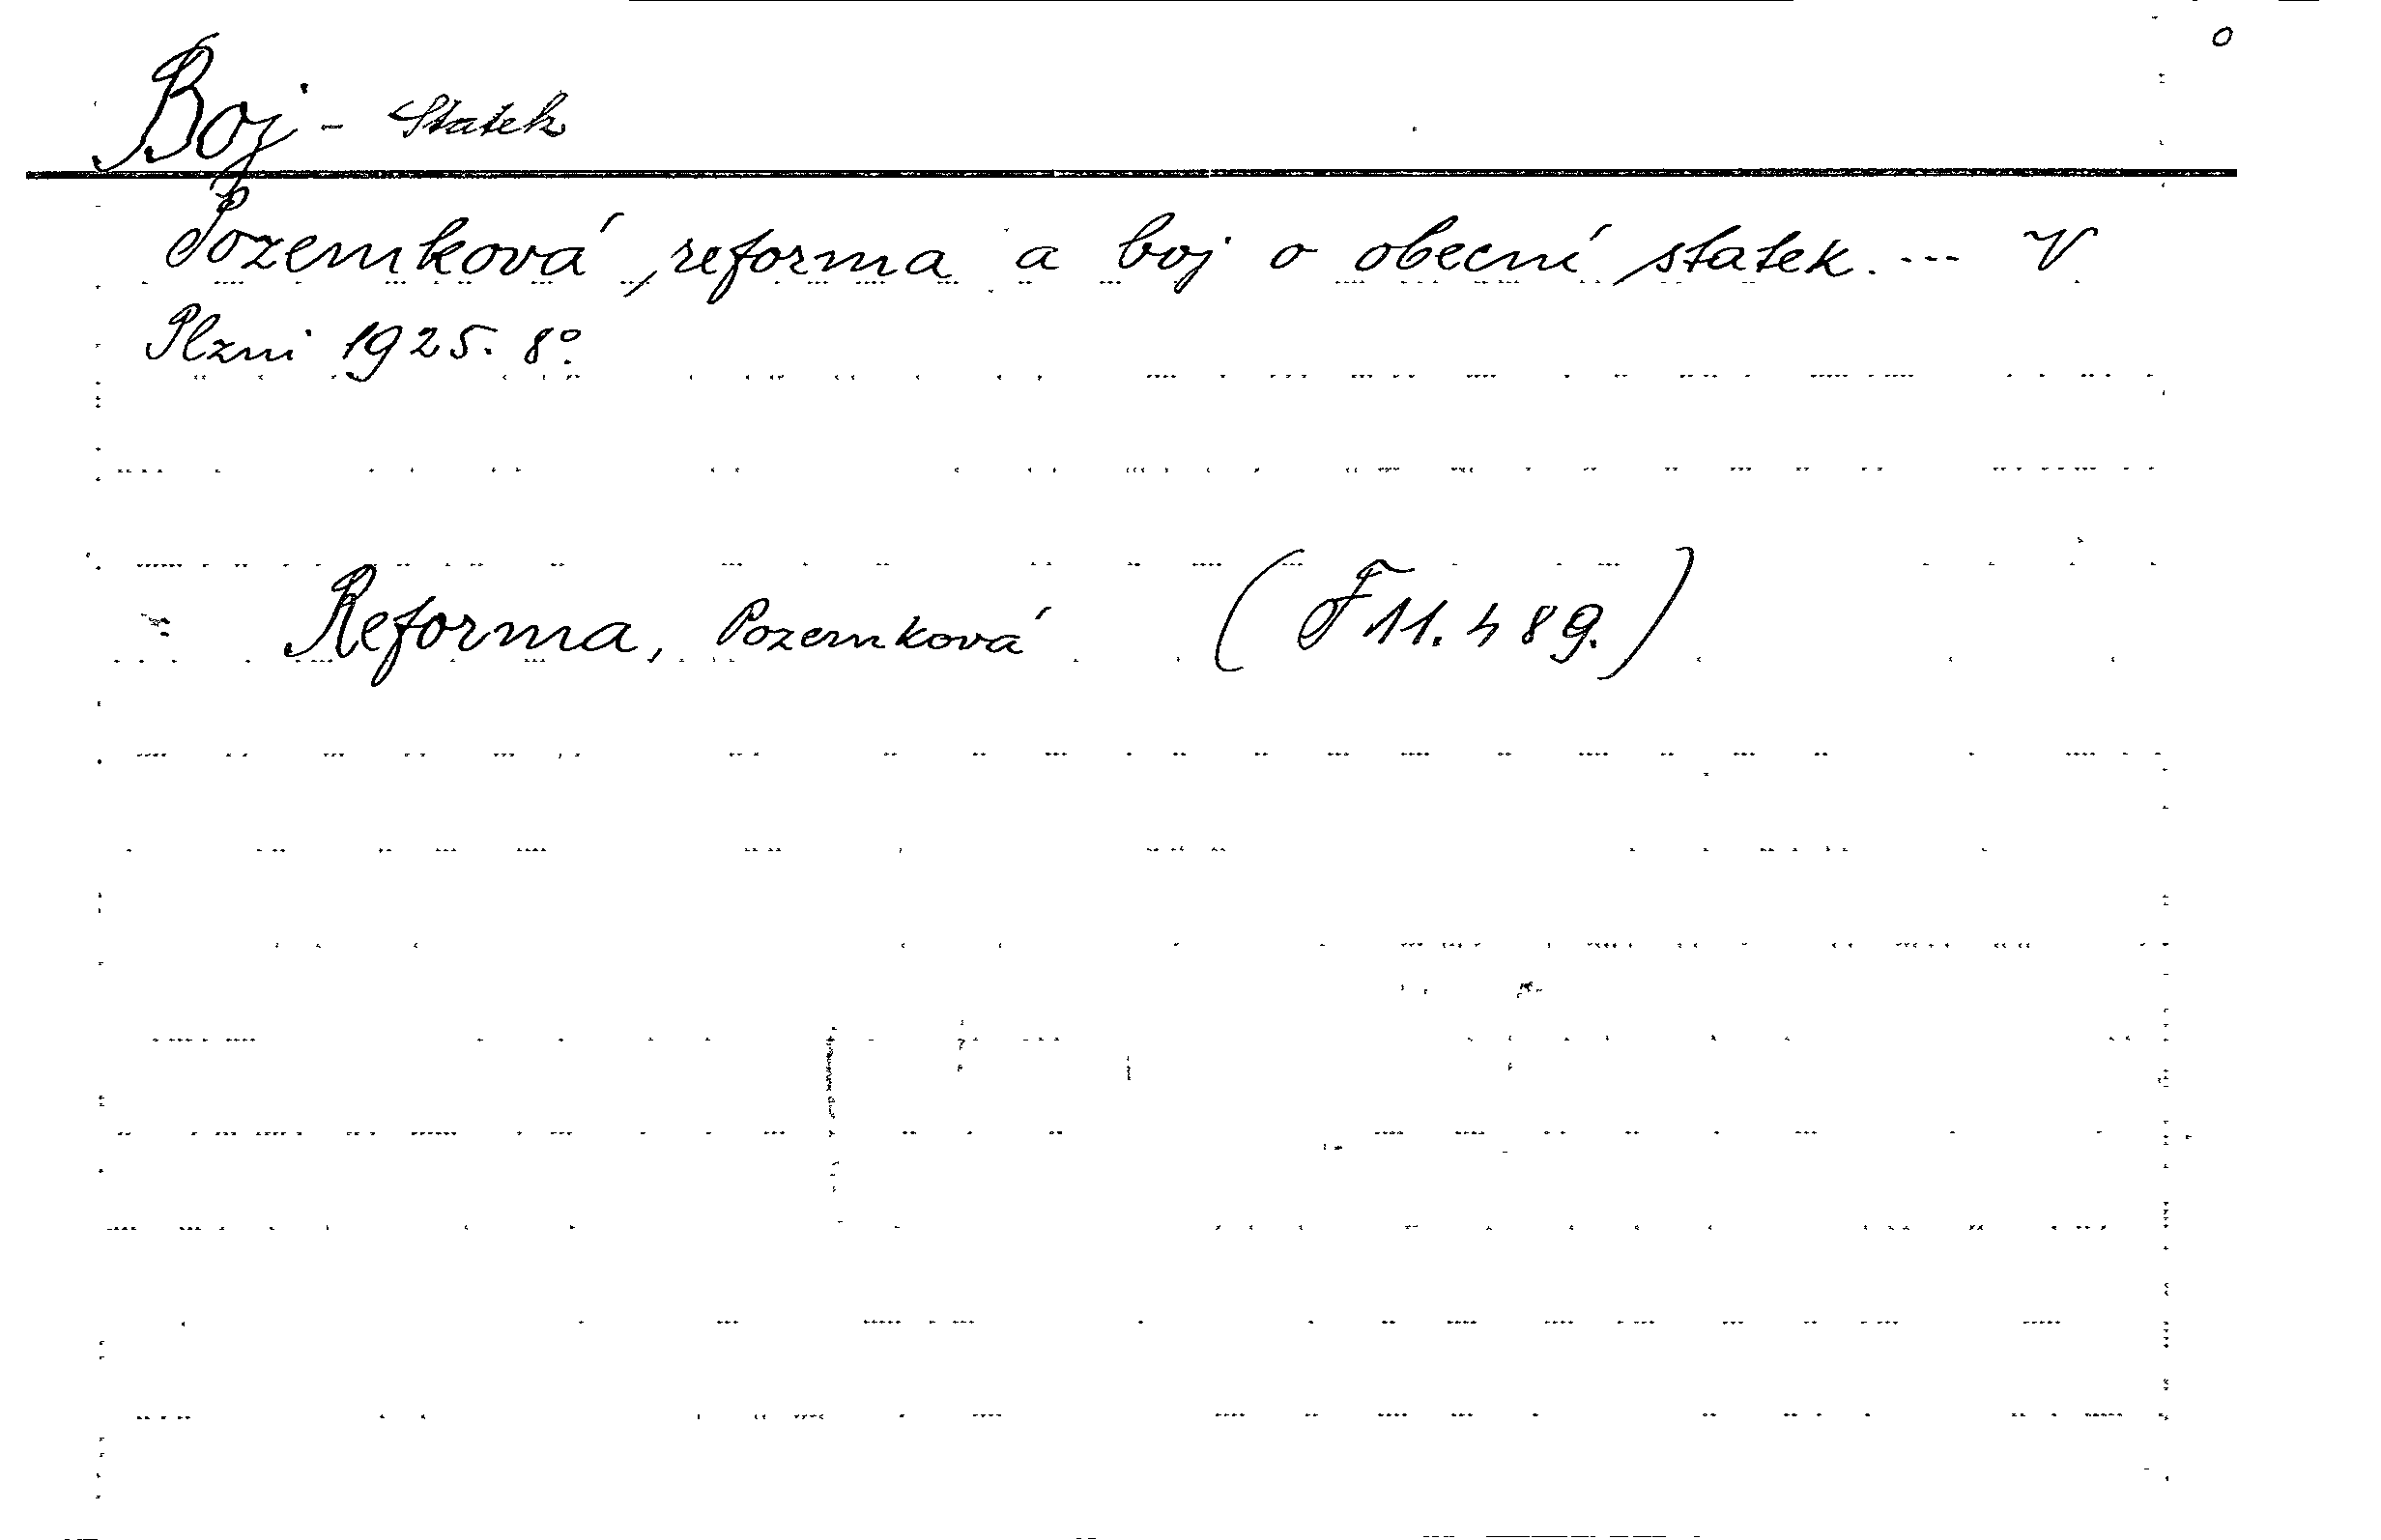 o
Boj - Statek
Pozemková reforma a boj o obecní statek. --- V
Plzni 1925. 8°.
Reforma, Pozemková (F 11.489.)